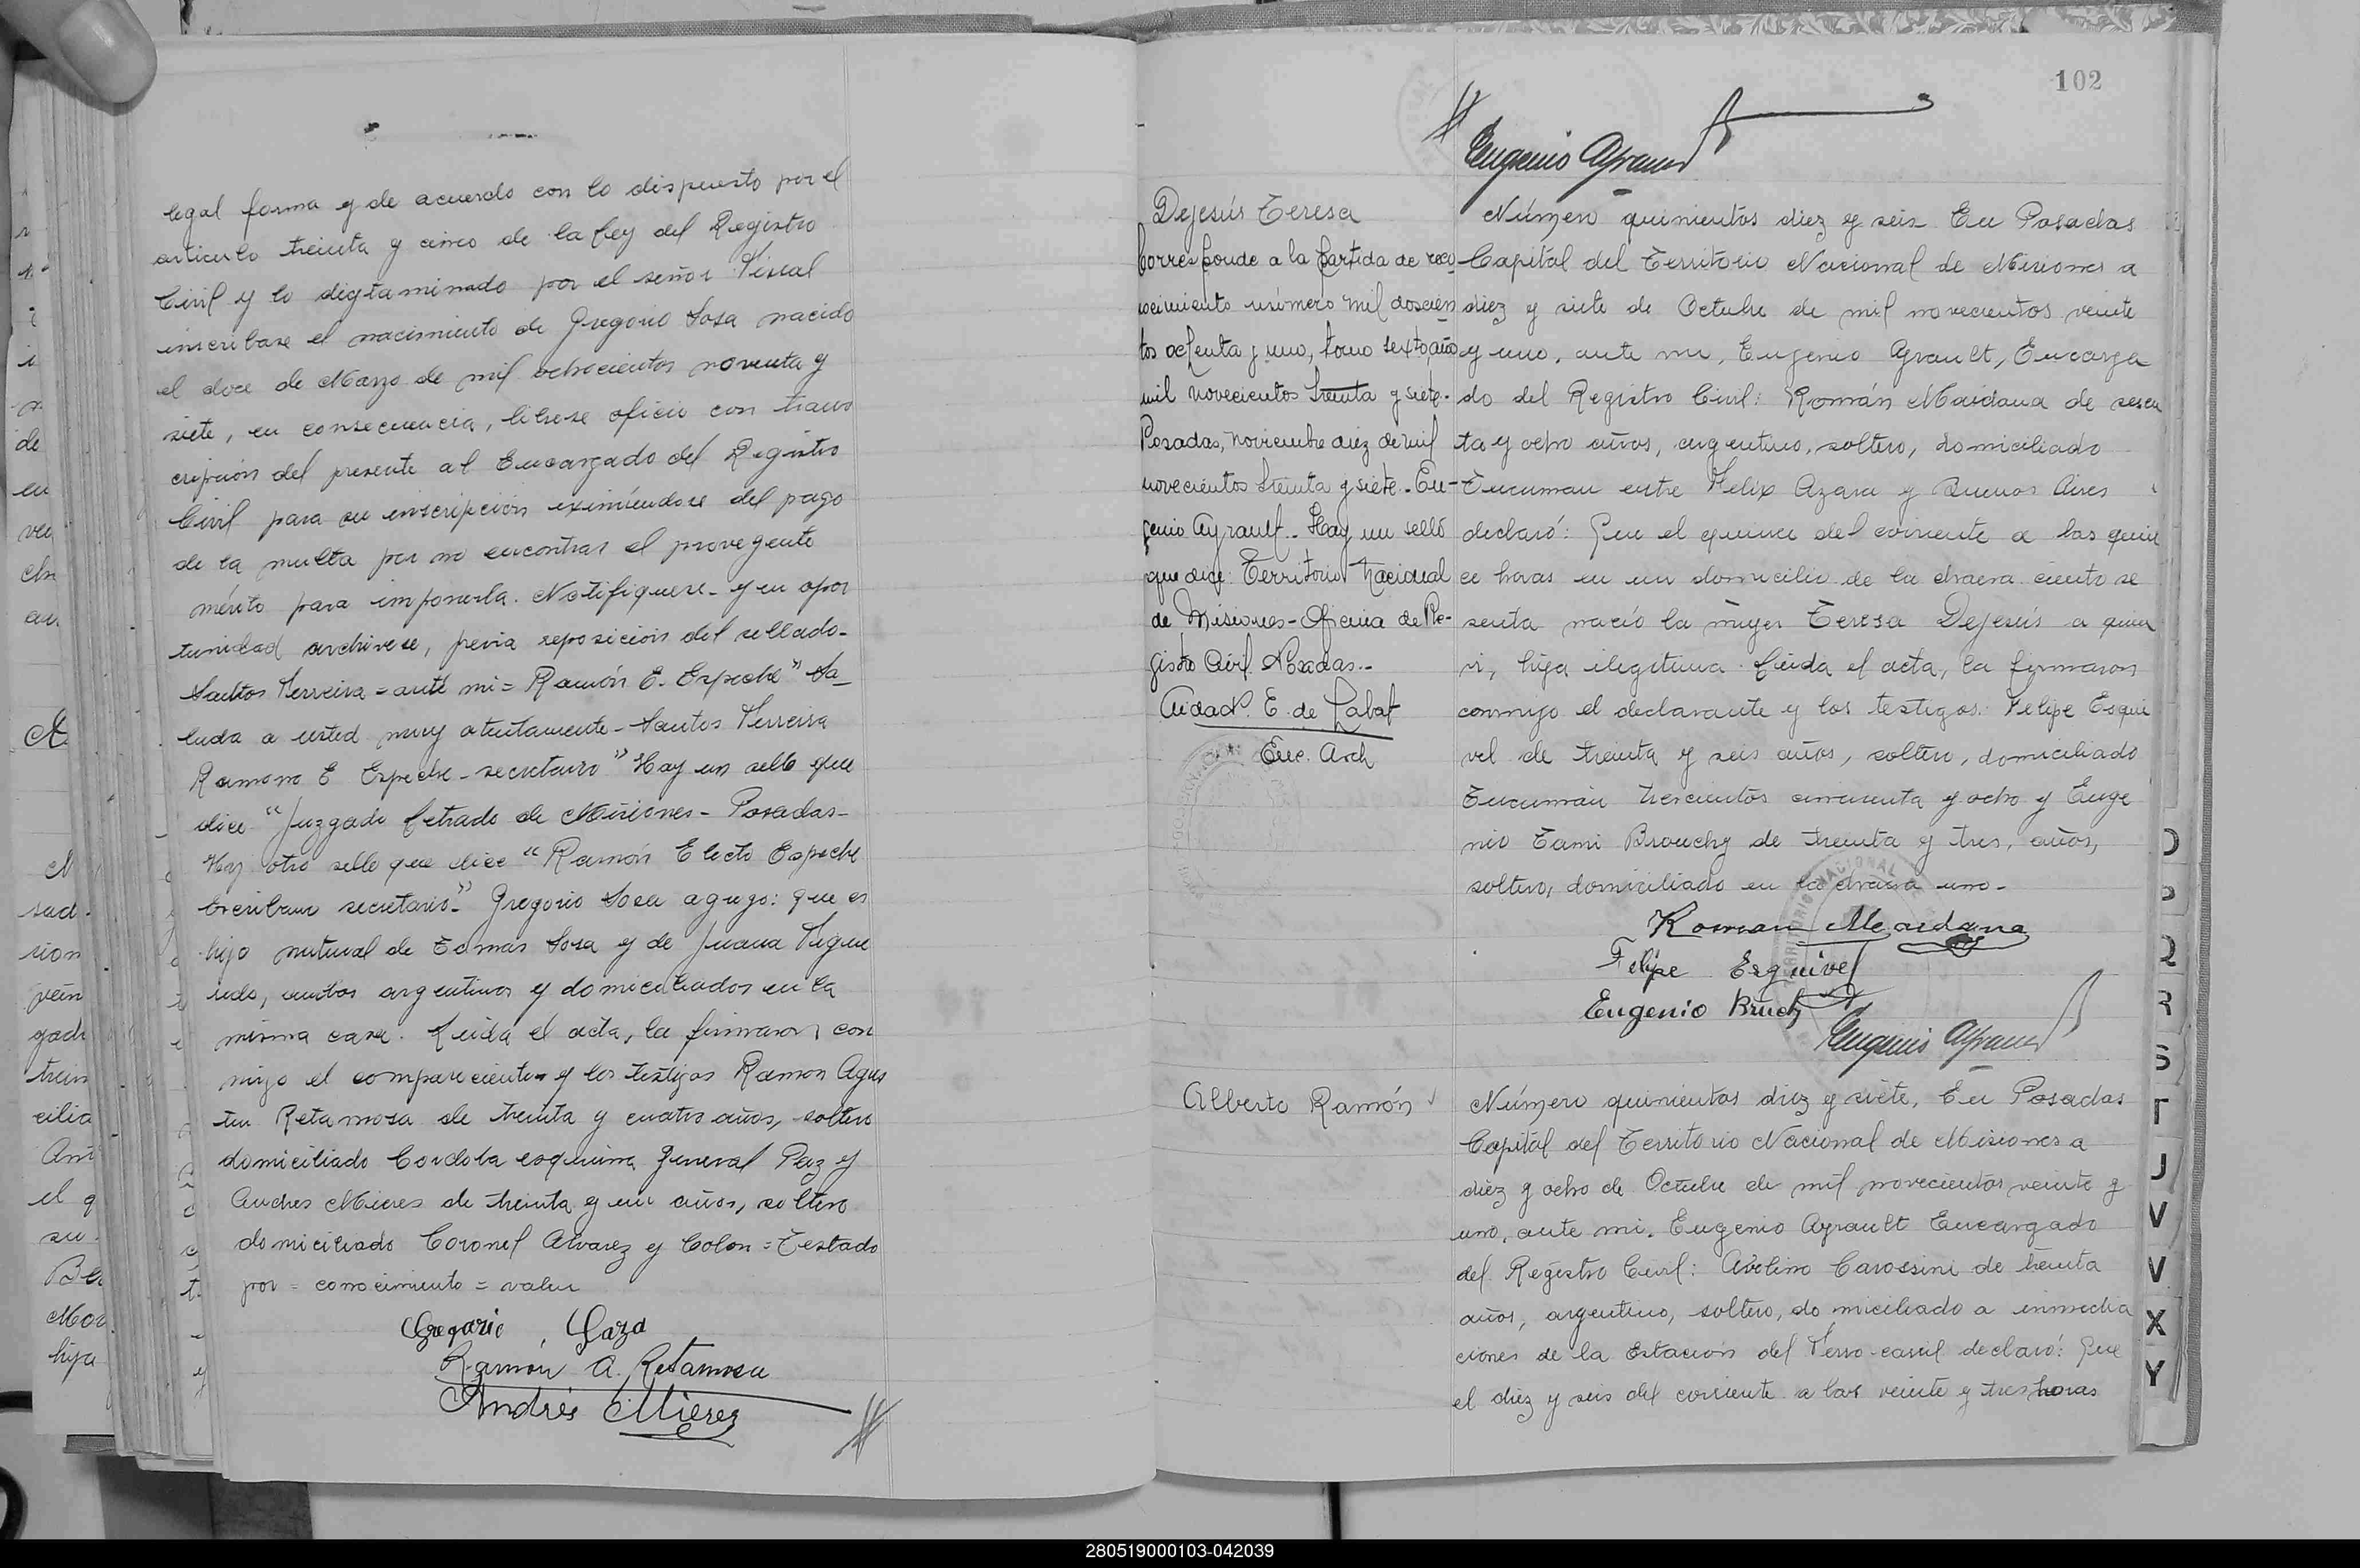 legal forma y de acuerdo con lo dispuesto por el
articulo treinta y cinco de la Ley del Registro
Civil y lo digtaminado por el señor Fiscal
inscribase el nacimiento de Gregorio Sosa nacido
el doce de Marzo de mil ochocientos noventa y
siete, en consecuencia, librese oficio con trans
cripción del presente al Encargado del Registro
Civil para su inscripción eximiéndose del pago
de la multa por no encontrar el proveyente
mérito para imponerla. Notifiquese- y en opor
tunidad archivese, previa reposición del sellado-
Santos Ferreira = ante mi = Ramón E. Espeche" Sa_
luda a usted muy atentamente - Santos Ferreira
Ramon E Espeche - secretario" Hay un sello que
dice "Juzgado Letrado de Misiones - Posadas-
Hay otro sello que dice "Ramón Electo Espeche
Escribano secretario"- Gregorio Sosa agrego: que es
hijo natural de Tomás Sosa y de Juana Figue
redo, ambos argentinos y domiciliados en la
misma casa. Leida el acta, la firmaron con
migo el compareciente y los testigos Ramon Agus
tin Retamosa de treinta y cuatro años, soltero
domiciliado Cordoba esquina General Paz y
Andres Mieres de treinta y un años, soltero
domiciliado Coronel Alvarez y Colon = Testado
por = conocimiento = valen
Gregorio Saza
Ramón A. Retamosa
Andrés Mierez
102
Eugenio Ayrault
Dejesús Teresa
Corresponde a la partida de reco-
nocimiento número mil doscien
tos ochenta y uno, tomo sexto año
mil novecientos treinta y siete.
Posadas, noviembre diez de mil
novecientos treinta y siete. Eu-
genio Ayrault.. Hay un sello
que dice: Territorio Nacional
de Misiones - Oficina de Re-
gistro Civil. Posadas.-
E. de Labat
Enc. Arch
Número quinientos diez y seis En Posadas
Capital del Territorio Nacional de Misiones a
diez y siete de Octubre de mil novecientos veinte
y uno, ante mi, Eugenio Ayrault, Encarga
do del Registro Civil: Román Maidana de sesen
ta y ocho años, argentino, soltero, domiciliado
Tucuman entre Felix Azara y Buenos Aires
declaró: Que el quince del corriente a las quin
ce horas en un domicilio de la chacra ciento se
senta nació la mujer Teresa Dejesús a quien
vi, hija ilegitima. Leida el acta, la firmaron
conmigo el declarante y los testigos: Felipe Esqui
vel de treinta y seis años, soltero, domiciliado
Tucumán trescientos cincuenta y ocho y Euge
nio Tami Brouchy de treinta y tres, años,
soltero, domiciliado en la chacra uno-
Roman Maidana
Felipe Esquivel
Eugenio Bruch
Eugenio Ayrault
Alberto Ramón
Número quinientos diez y siete, En Posadas
Capital del Territorio Nacional de Misiones a
diez y ocho de Octubre de mil novecientos veinte y
uno, ante mi, Eugenio Ayrault Encargado
del Registro Civil: Avelino Carossini de treinta
años, argentino, soltero, domiciliado a inmedia
ciones de la Estación del Ferro-carril declaró: Que
el diez y seis del corriente a las veinte y tres horas
Q
R
S
T
J
V
V
X
Y
280519000103-042039